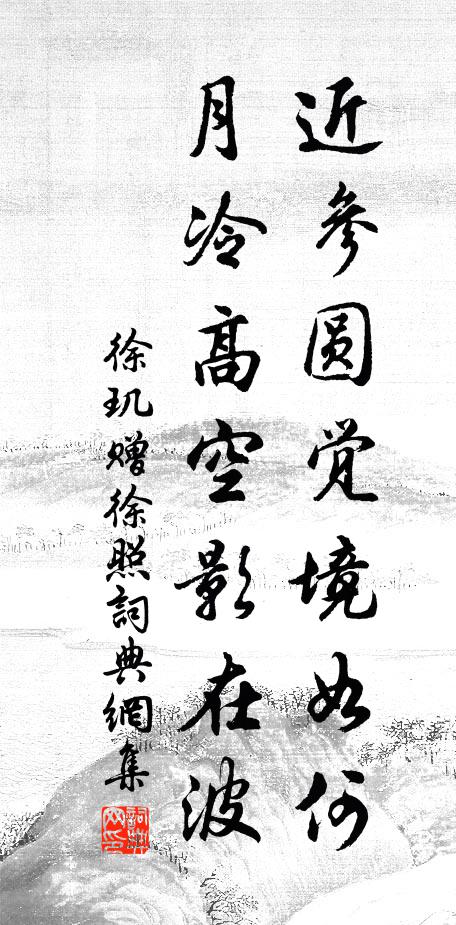 近參圆觉境如何
月冷高空影在波
徐玑赠徐照詞典網集